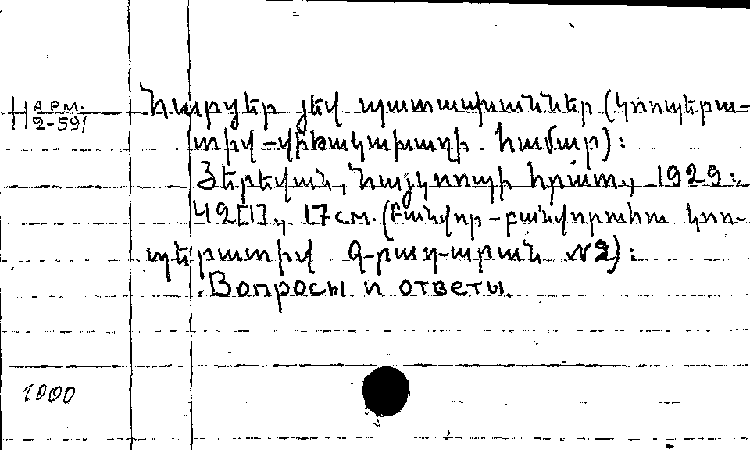 Н АРМ. 2-591
Հարցեր յեվ պատասխաններ (կոոպերա-
տիվ -վիճակախաղի. համար):
Յերեվան, Հայկոոպի հրատ., 1929:
42[1]., 17см. (Բանվոր-բանվորուհու կոո-
պերատիվ Գրադարան №2):
Вопросы и ответы.
1000